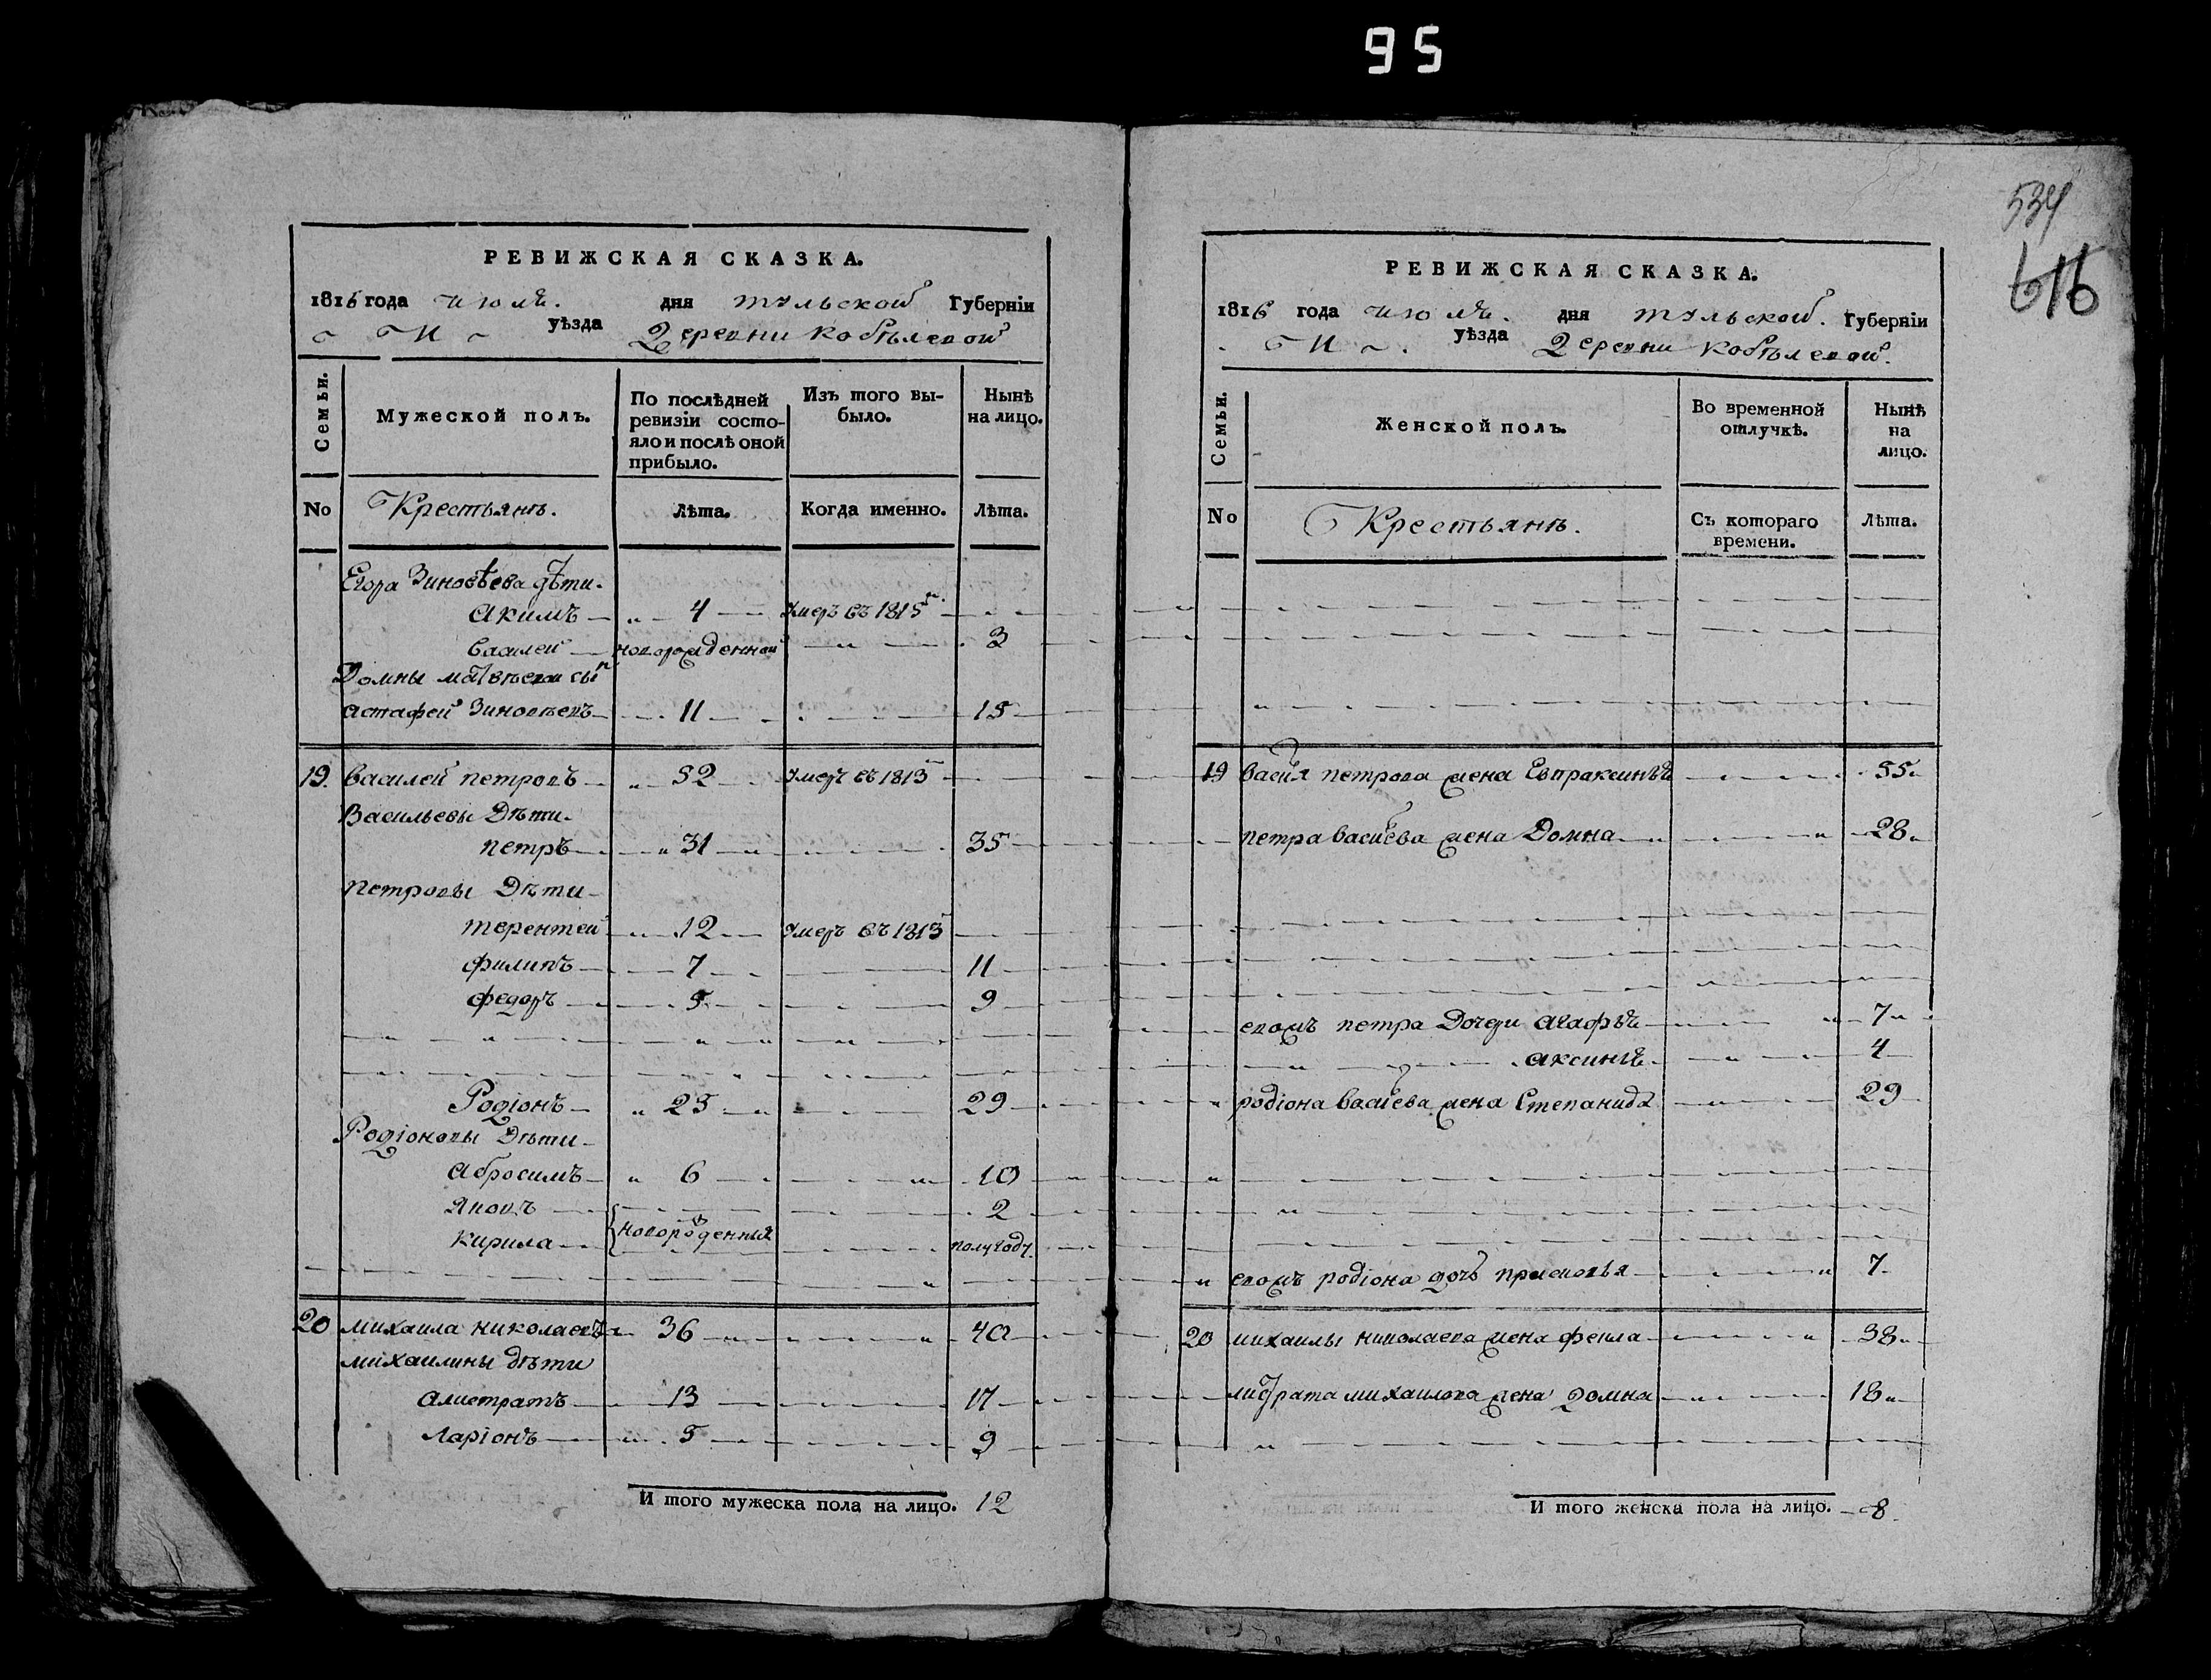 95
534
616
РЕВИЖСКАЯ СКАЗКА.
1816 года июля. дня тульской Губерніи
уѣзда Деревни Кобѣлевой
Семьи.
Мужеской полъ.
По послѣдней ревизіи состояло и послѣ оной прибыло.
Изъ того выбыло.
Нынѣ на лицо.
No Крестьянъ. Лѣта. Когда именно. Лѣта.
Егора Зиновѣева дѣти
Акимъ 4 Умеръ въ 1815
Василей новорожденной 3
Домны
Астафей Зиновѣевъ 11 15
19. Василей петровъ 52 Умеръ въ 1813
Васильевы Дѣти
петръ 31 35
петровы Дѣти
терентей 12 Умеръ въ 1813
филипъ 7 11
федоръ 5 9
Родіонъ 25 29
Родіоновы Дѣти
Абросимъ 6 10
Яковъ 2
новорожденныя
Кирила полугоду
20 михаила николаевъ 36 40
михаилины дѣти
Алистратъ 13 17
Ларіонъ 5 9
И того мужеска пола на лицо. 12
РЕВИЖСКАЯ СКАЗКА.
1816 года июля. дня тульской. Губерніи
уѣзда Деревни Кобѣлевой.
Семьи.
Женской полъ.
Во временной отлучкѣ.
Нынѣ на лицо.
No Крестьянъ. Съ котораго времени. Лѣта.
19 петрова жена 55
петра жена Домна 28
петра Дочери Агафья 7
аксинья 4
родіона жена Степанида 29
родіона дочь 7
20 михаилы николаева жена фекла 38
михаилова жена Домна 18
И того женска пола на лицо. 8